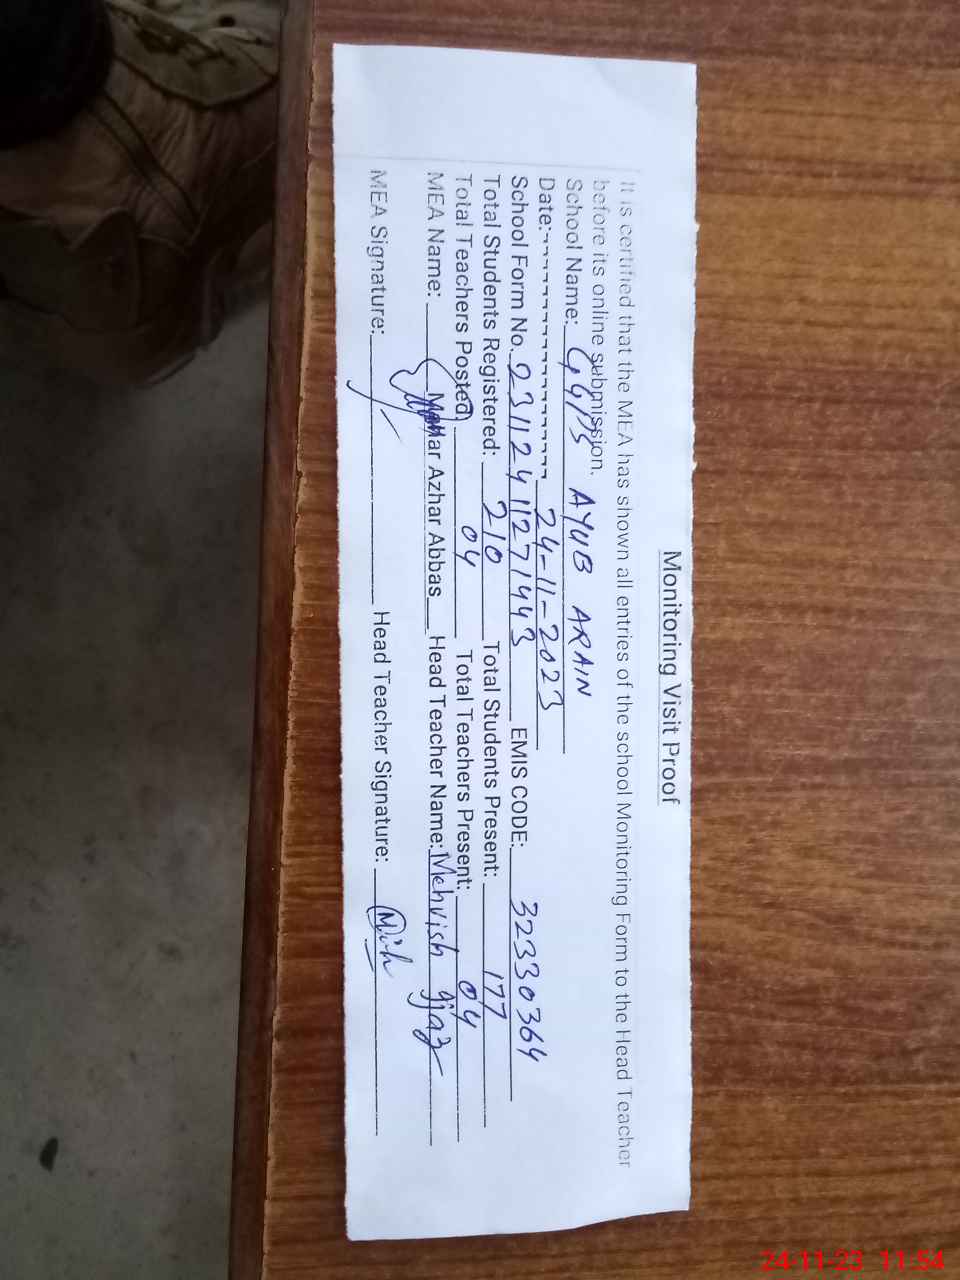 Monitoring Visit Proof
It is certified that the MEA has shown all entries of the school Monitoring Form to the Head Teacher
before its online submission.
School Name: GGPS AYUB ARAIN
Date: 24-11-2023
School Form No. 23112411271443 EMIS CODE: 32330364
Total Students Registered: 210 Total Students Present: 177
Total Teachers Posted: 04 Total Teachers Present: 04
MEA Name: Azhar Abbas Head Teacher Name: Mehvish Ijaz
MEA Signature: Head Teacher Signature:
24-11-23 11:54